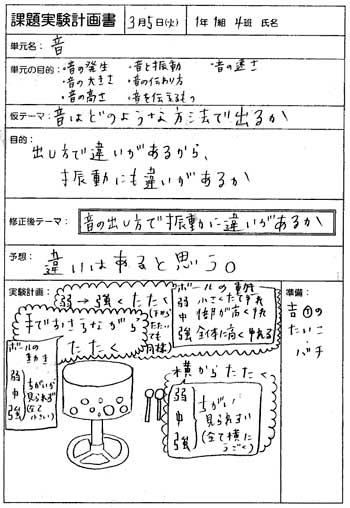 課題実験計画書
3月5日(火)
1年1組4班 氏名
単元名: 音
単元の目的: ・音の発生 ・音と振動 ・音の速さ
・音の大きさ ・音の伝わり方
・音の高さ ・音を伝えるもの
仮テーマ: 音はどのような方法で出るか
目的:
出し方で違いがあるから、
振動にも違いがあるか
修正後テーマ: 音の出し方で振動に違いがあるか
予想: 違いはあると思う。
実験計画:
弱→強くたたく
手でおさえながら
たたく
ボールの動き
弱
中
強 全体に高く
ボールの
動き
弱
中
強
ちがいが
見られず
(全て
小さい)
横からたたく
弱
中
強
ちがい
見られず
(全て横に
うごく)
準備:
音①の
たいこ
・バチ